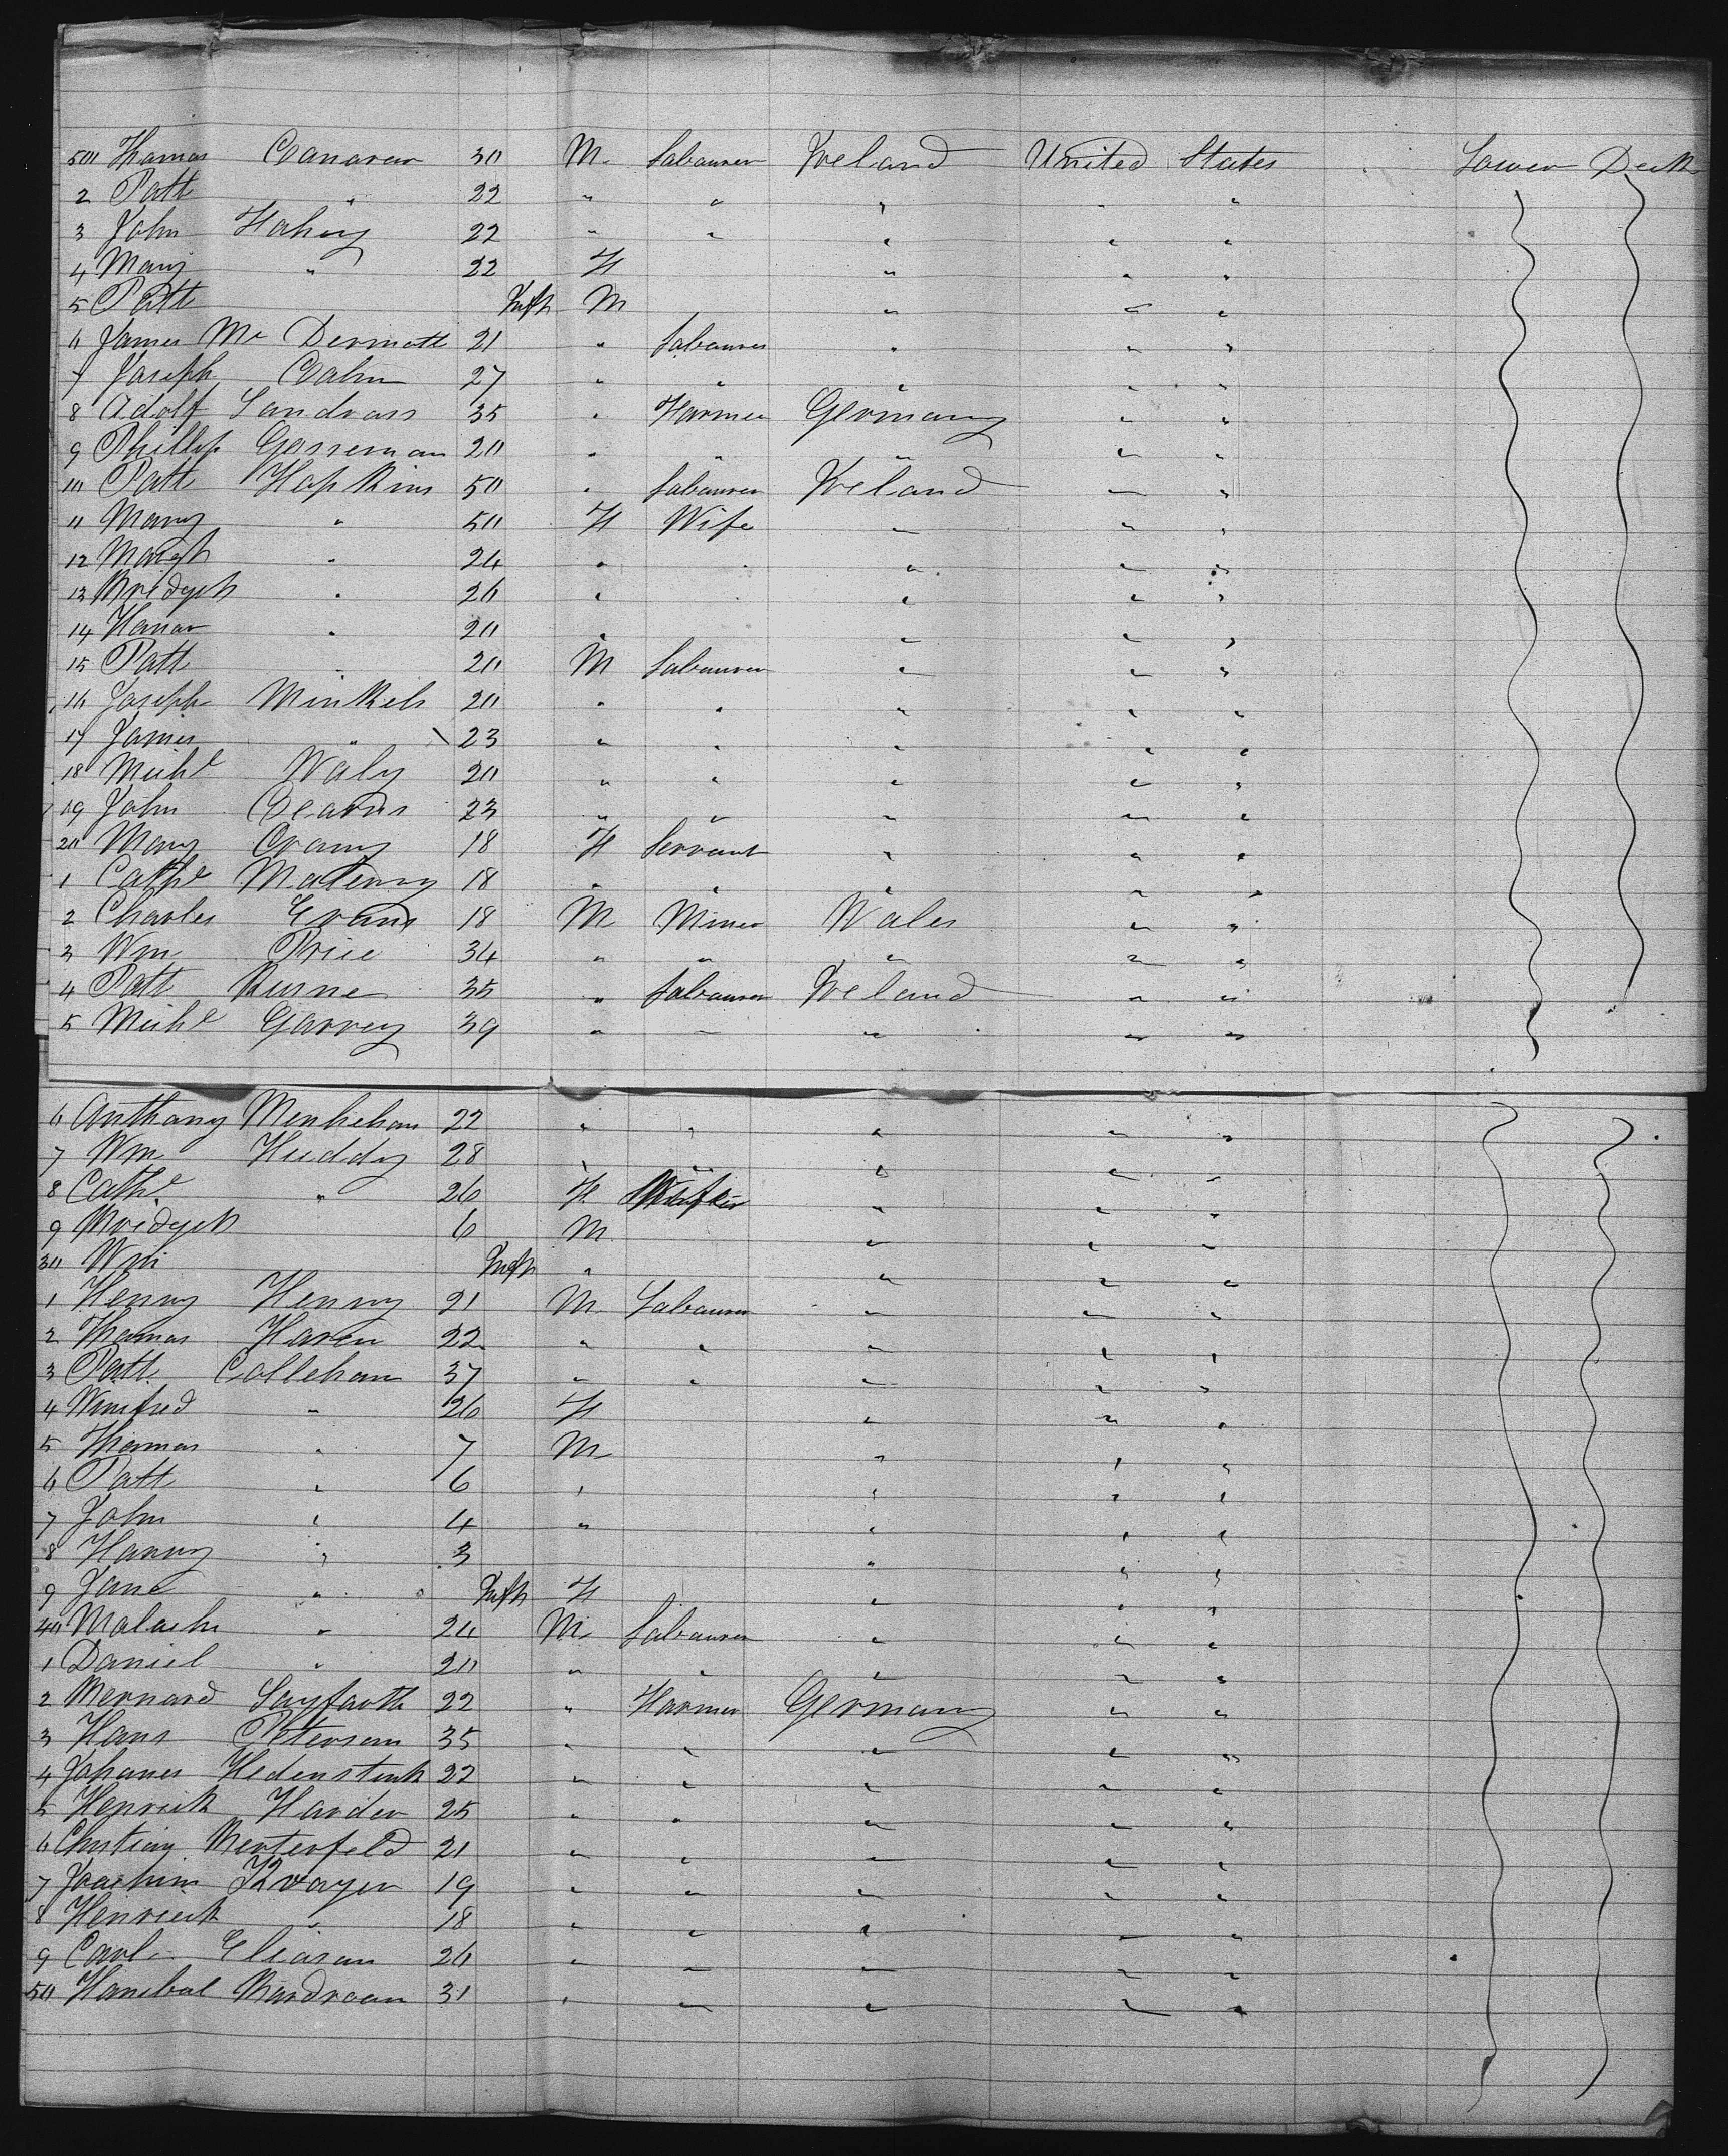 501 Thomas Canavan 30 M. Labourer Ireland United States Lower Deck
2 Patt " 22 " " " " "
3 John Fahey 22 " " " " "
4 Mary " 22 F " " "
5 Patt Infh M " " "
6 James Mc Dermott 21 " Labourer " " "
7 Joseph Calm 27 " " " " "
8 Adolf Landvars 35 " Farmer Germany " "
9 Phillip Gasseman 20 " " " " "
10 Patt Hopkins 50 " Labourer Ireland " "
11 Mary " 50 F Wife " " "
12 Margh " 24 " " " "
13 Bridget " 26 " " " "
14 Hanar " 20 " " " "
15 Patt " 20 M Labourer " " "
16 Joseph Minkels 20 " " " " "
17 James " 23 " " " " "
18 Michl Waly 20 " " " " "
19 John Bearns 23 " " " " "
20 Mary Crany 18 F Servant " " "
1 Cathe Mateny 18 " " " " "
2 Charles Evans 18 M Miner Wales " "
3 Wm Price 34 " " " " "
4 Patt Burne 35 " Labourer Ireland " "
5 Michl Garvey 39 " " " " "
6 Anthony Menhehan 22 " " " " "
7 Wm Huddy 28 " " " " "
8 Cathe " 26 F. Wife " " "
9 Bridget 6 M " " "
30 Wm Infh " " " "
1 Henry Henry 21 M. Labourer " " "
2 Thomas Haren 22 " " " " "
3 Patt Collehan 37 " " " " "
4 Winifred " 26 F " " "
5 Thomas " 7 M " " "
6 Patt " 6 " " " "
7 John " 4 " " " "
8 Harry " 3 " " "
9 Jane " Infh F " " "
40 Malachi " 24 M. Labourer " " "
1 Daniel " 20 " " " " "
2 Bernard Sayfarth 22 " Farmer Germany " "
3 Hans Petersen 35 " " " " "
4 Johanes Hedenstenk 22 " " " " "
5 Henrick Harder 25 " " " " "
6 Christian Mesterfeld 21 " " " " "
7 Joachim Krayer 19 " " " " "
8 Henrick " 18 " " " " "
9 Carl Eliasan 26 " " " " "
50 Hanibal Bardroan 31 " " " " "